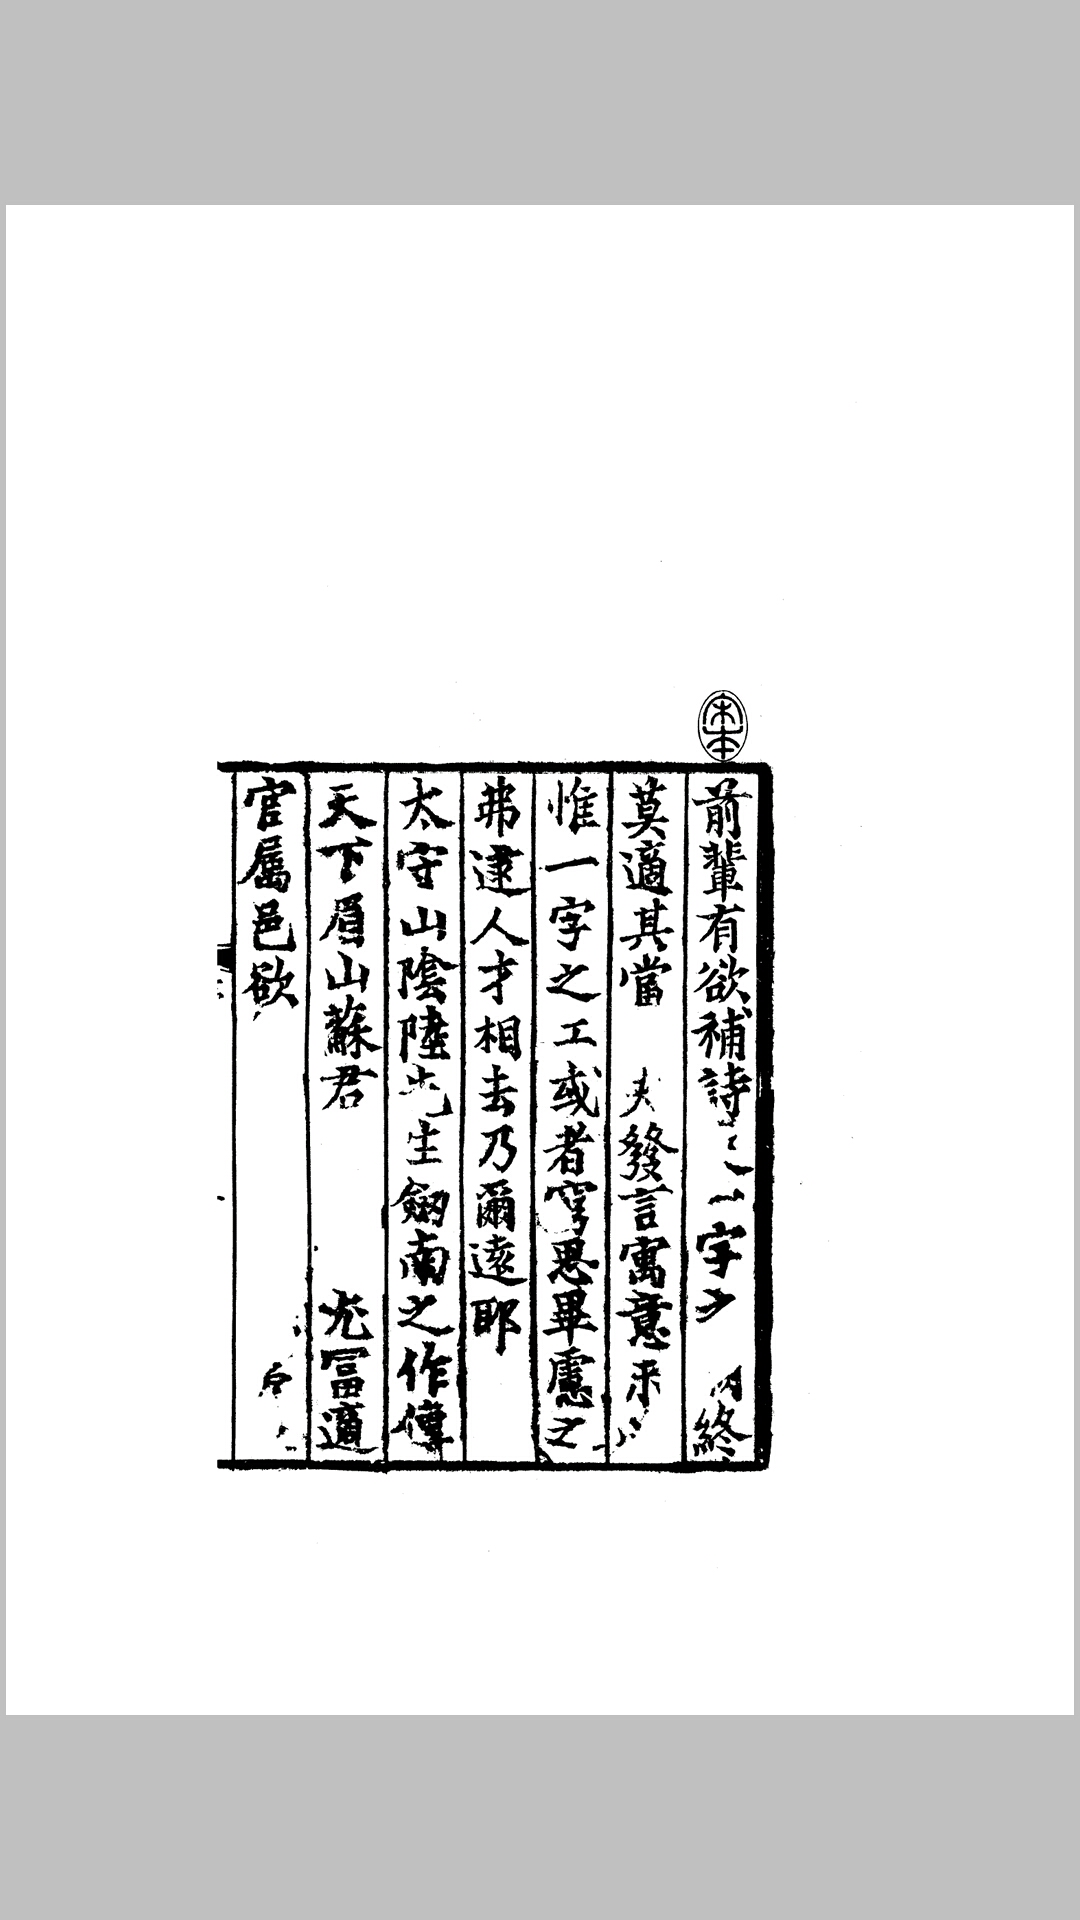 宋本
前輩有欲補詩一字少終
莫適其當夫發言寓意来
惟一字之工或者窮思畢慮之
弗逮人才相去乃爾遠耶
太守山陰陸先生劒南之作傳
天下眉山蘇君尤冨適
官属邑欲